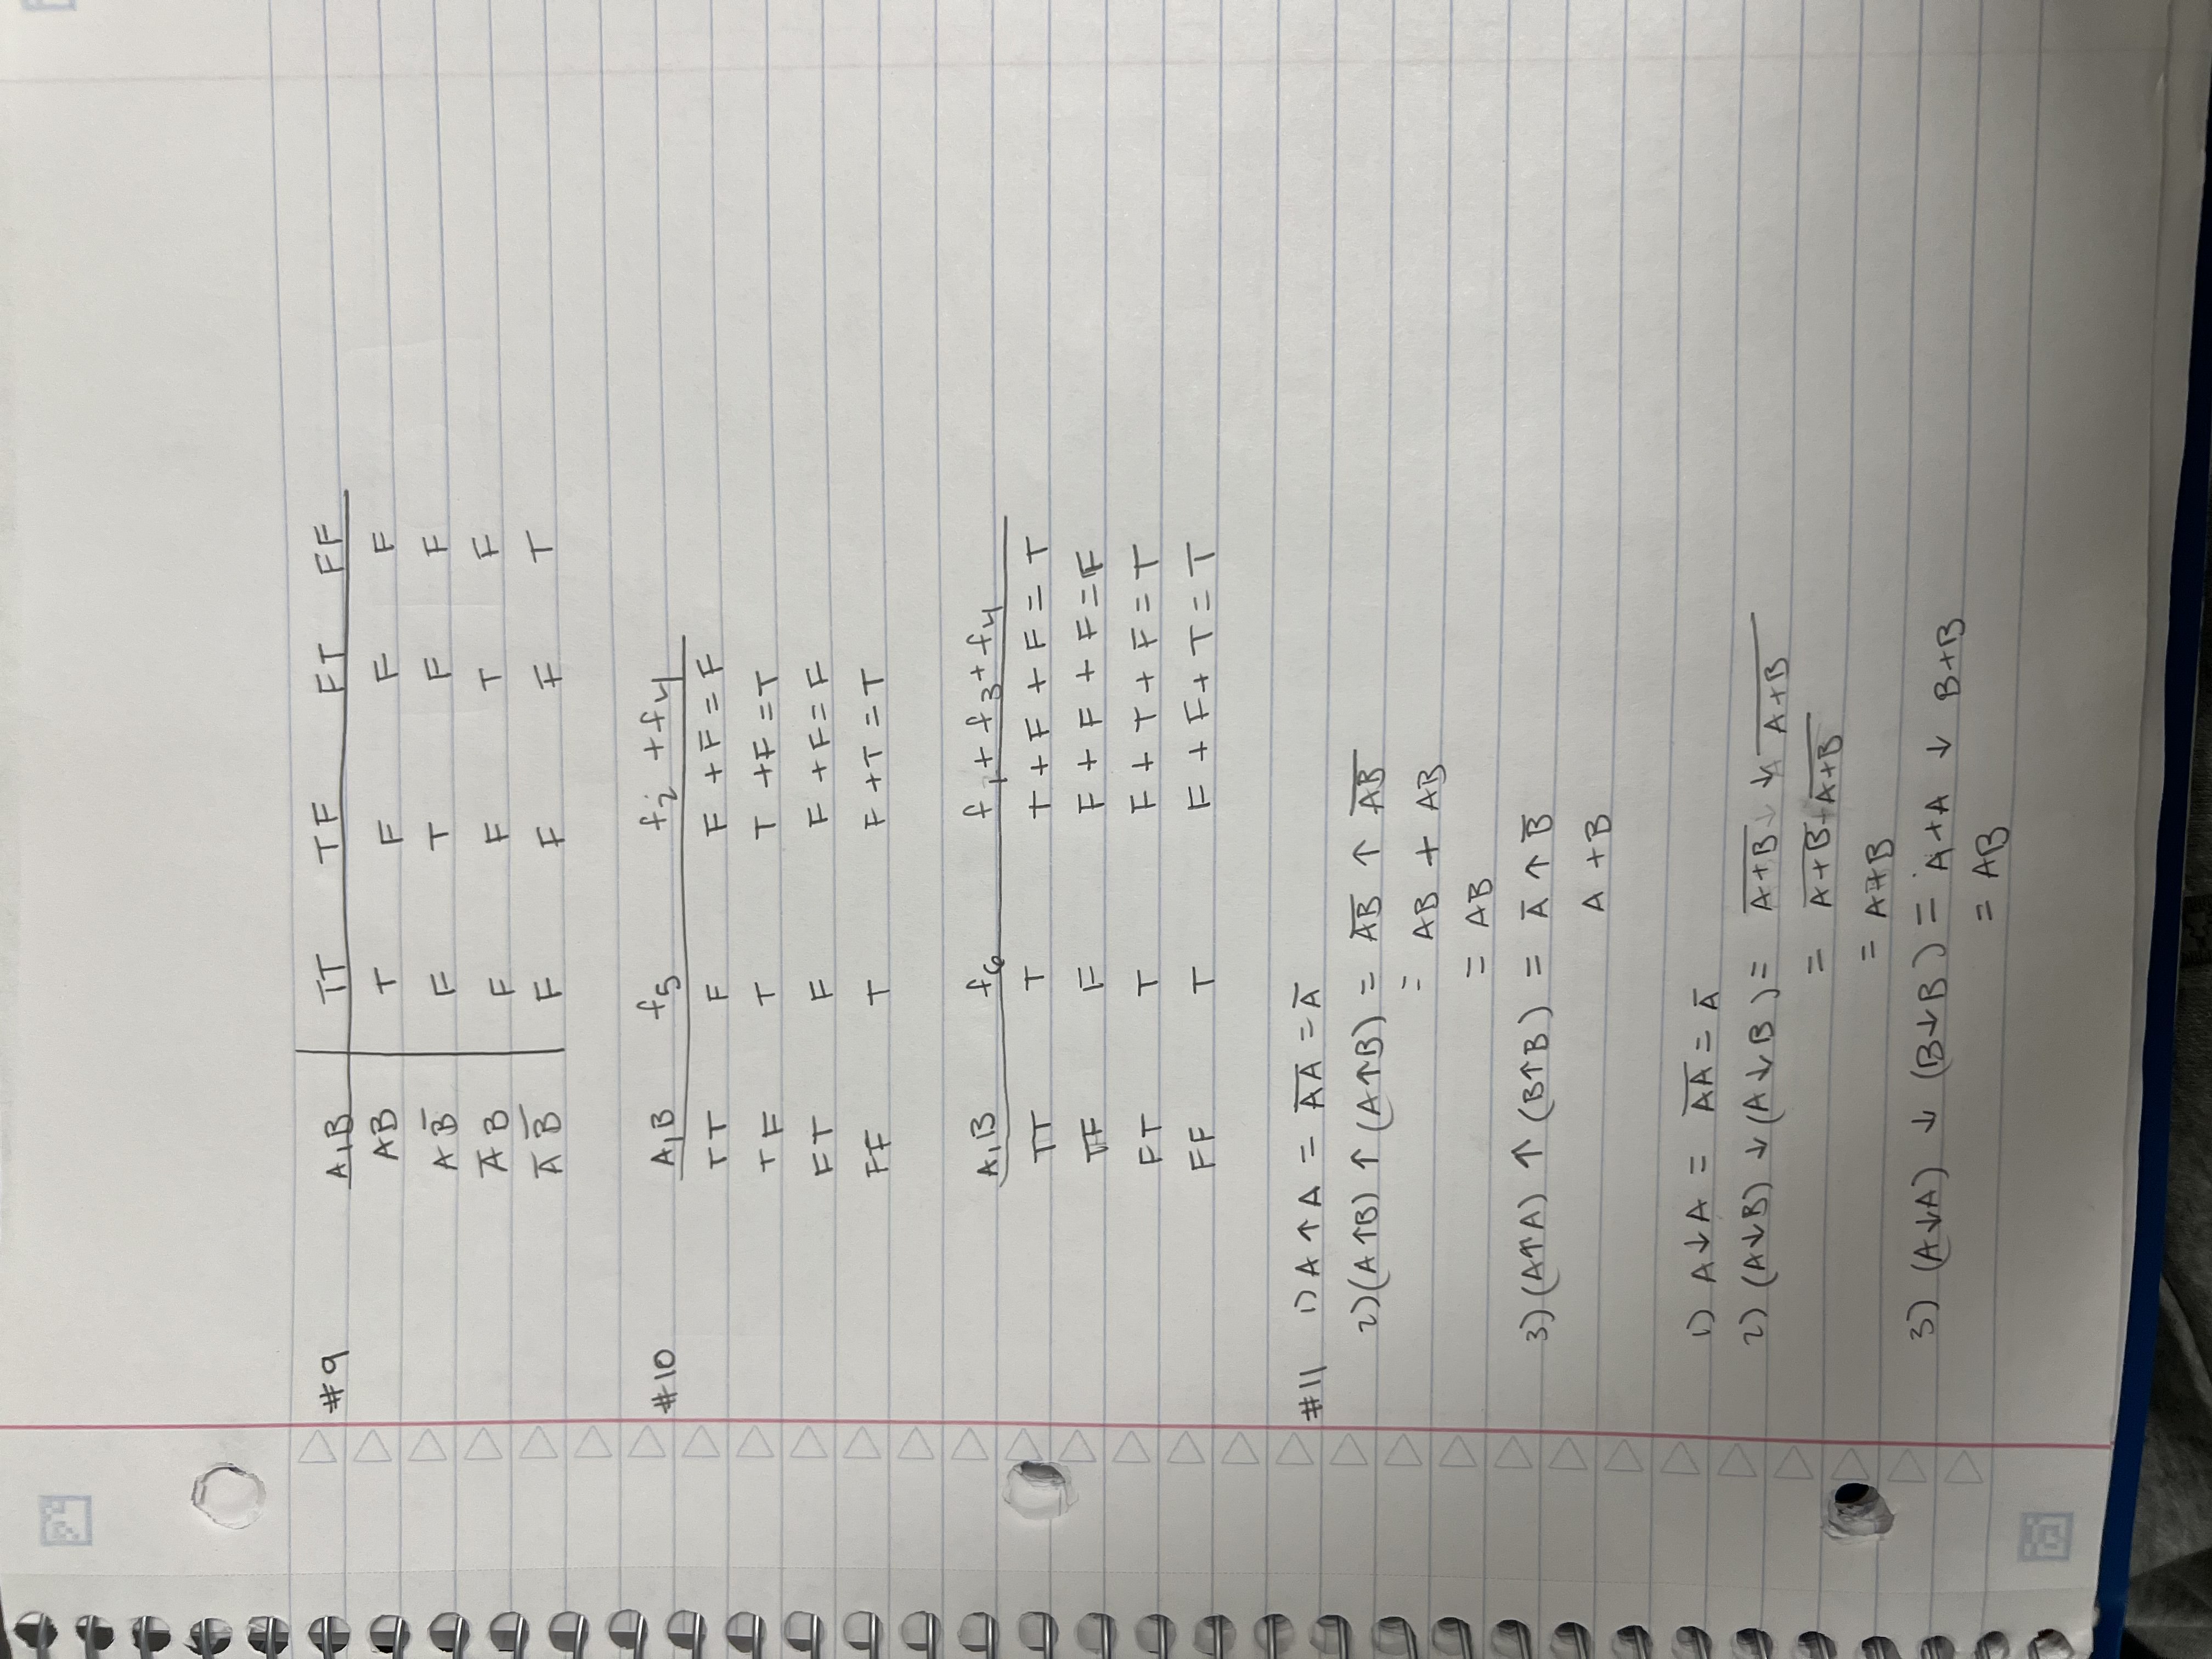 #9 A,B TT TF FT FF
AB T F F F
AB̅ F T F F
A̅B F F T F
A̅ B̅ F F F T
#10 A,B f₅ f₂ + f₄
TT F F + F = F
TF T T + F = T
FT F F + F = F
FF T F + T = T
A,B f₆ f₁ + f₃ + f₄
TT T T + F + F = T
TF F F + F + F = F
FT T F + T + F = T
FF T F + F + T = T
#11 1) A ↑ A = A̅A̅ = A̅
2) (A ↑ B) ↑ (A ↑ B) = A̅B̅ ↑ A̅B̅
= AB + AB
= AB
3) (A↑A) ↑ (B↑B) = A̅ ↑ B̅
A + B
1) A ↓ A = A̅A̅ = A̅
2) (A↓B) ↓ (A↓B) = A̅+̅B̅ ↓ A̅+̅B̅
= A̅+̅B̅ + A̅+̅B̅
= A+B
3) (A↓A) ↓ (B↓B) = A+A ↓ B+B
= AB